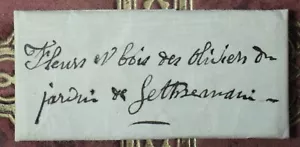 Fleurs et bois des oliviers du
jardin de Gethsemani –